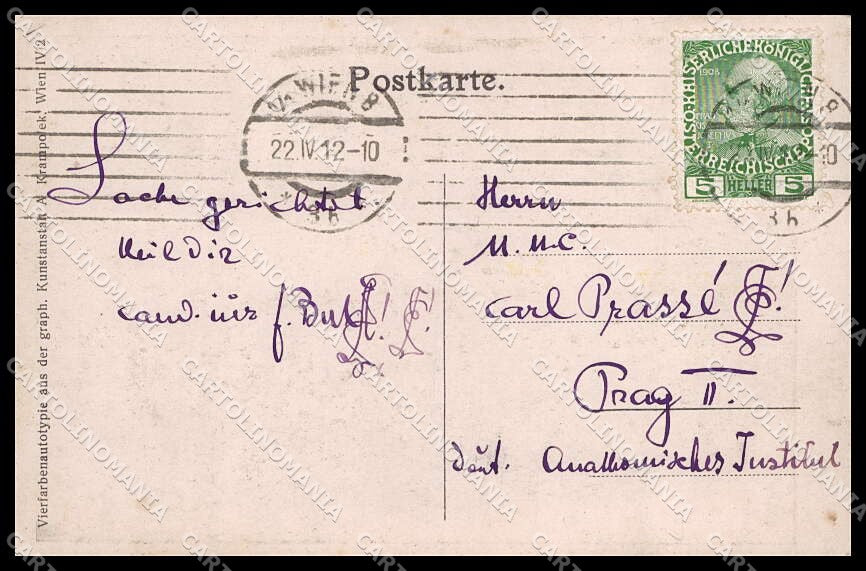 Postkarte.
WIEN 8
22.IV.12-10
* 3b *
KAISERLICHE KÖNIGLICHE
ÖSTERREICHISCHE POST
1908
5 HELLER 5
Vierfarbenautotypie aus der graph. Kunstanstalt A. Krampolek, Wien IV/2
Sache gerichtet.
Heil Dir
cand. iur f.
Herrn
M. U. C.
Carl Prassé
Prag II.
Deut. Anathomisches Institut
CARTOLINOMANIA